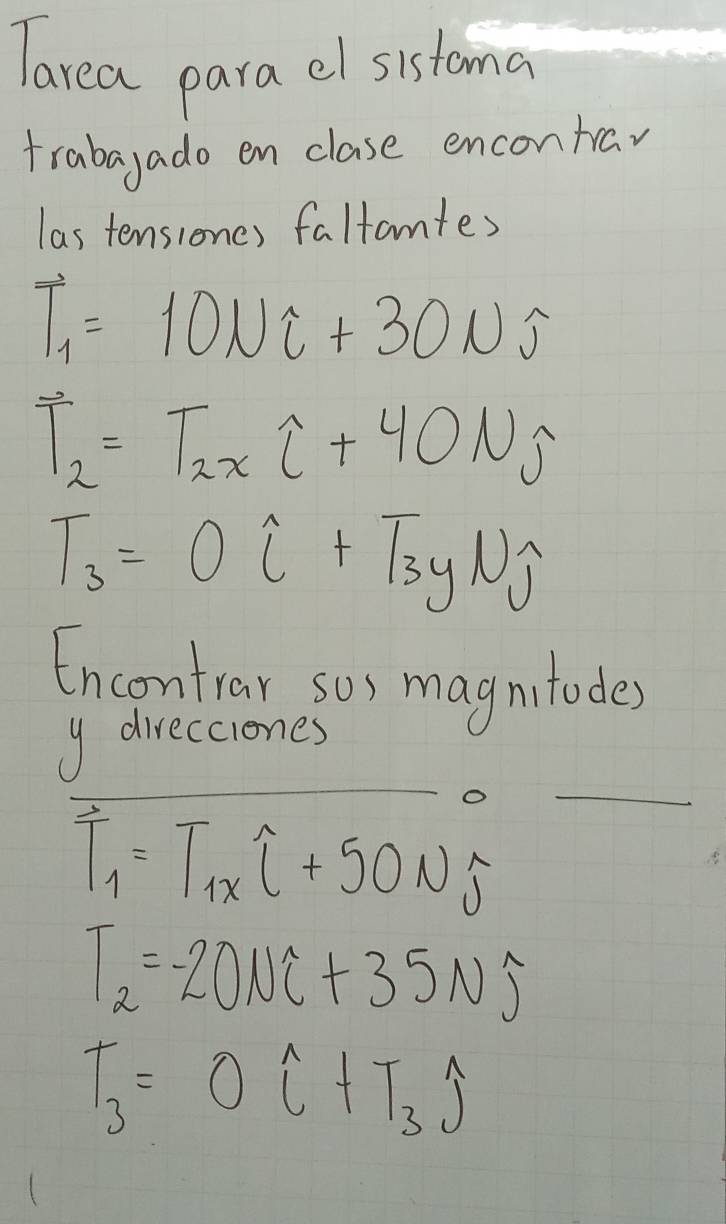 Tarea para el sistema
trabajado en clase encontrar
las tensiones faltantes
T⃗₁ = 10N î + 30N ĵ
T⃗₂ = T₂ₓ î + 40N ĵ
T₃ = 0 î + T₃y N ĵ
Encontrar sus magnitudes
y direcciones
T⃗₁ = T₁ₓ î + 50N ĵ
T₂ = -20N î + 35N ĵ
T₃ = 0 î + T₃ ĵ